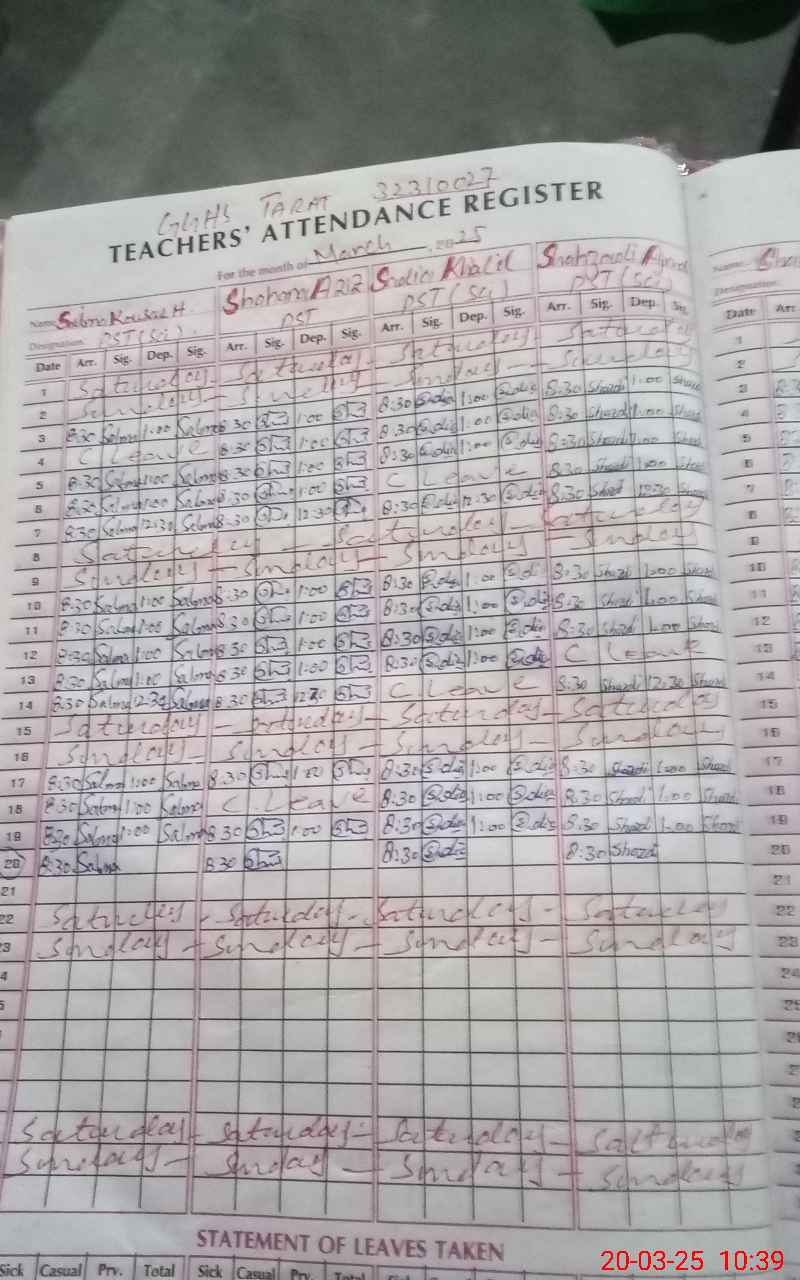 GGHS TARAT 32310027
TEACHERS' ATTENDANCE REGISTER
For the month of March 2025
Name Salma Kousar H. Shabana Aziz Sadia Khalid
Designation PST (Sci) PST PST (Sci) PST (Sci)
Date Arr. Sig. Dep. Sig. Arr. Sig. Dep. Sig. Arr. Sig. Dep. Sig. Arr. Sig. Dep. Sig. Date Arr
1 Saturday Saturday Saturday Saturday 1
2 Sunday Sunday Sunday Sunday 2
3 8:30 Salma 1:00 Salma 8:30 1:00 8:30 Sadia 1:00 Sadia 8:30 Shazadi 1:00 3
4 C Leave 8:30 1:00 8:30 Sadia 1:00 Sadia 8:30 Shazadi 1:00 4
5 8:30 Salma 1:00 Salma 8:30 1:00 8:30 Sadia 1:00 Sadia 8:30 Shazadi 1:00 5
6 8:30 Salma 1:00 Salma 8:30 1:00 C Leave 8:30 1:00 6
7 8:30 Salma 12:30 Salma 8:30 12:30 8:30 Sadia 12:30 Sadia 8:30 12:30 7
8 Saturday Saturday Saturday 8
9 Sunday Sunday Sunday Sunday 9
10 8:30 Salma 1:00 Salma 8:30 1:00 8:30 Sadia 1:00 Sadia 8:30 Shazadi 1:00 10
11 8:30 Salma 1:00 Salma 8:30 1:00 8:30 Sadia 1:00 Sadia 8:30 Shazadi 1:00 11
12 8:30 Salma 1:00 Salma 8:30 1:00 8:30 Sadia 1:00 Sadia 8:30 Shazadi 1:00 12
13 8:30 Salma 1:00 Salma 8:30 1:00 8:30 Sadia 1:00 Sadia C Leave 13
14 8:30 Salma 12:30 Salma 8:30 12:30 C Leave 8:30 Shazadi 12:30 14
15 Saturday Saturday Saturday Saturday 15
16 Sunday Sunday Sunday Sunday 16
17 8:30 Salma 1:00 Salma 8:30 1:00 8:30 Sadia 1:00 Sadia 8:30 Shazadi 1:00 17
18 8:30 Salma 1:00 Salma C. Leave 8:30 Sadia 1:00 Sadia 8:30 Shazadi 1:00 18
19 8:30 Salma 1:00 Salma 8:30 1:00 8:30 Sadia 1:00 Sadia 8:30 Shazadi 1:00 19
20 8:30 Salma 8:30 8:30 Sadia 8:30 20
21 21
22 Saturday Saturday Saturday Saturday 22
23 Sunday Sunday Sunday Sunday 23
Saturday Saturday Saturday Saturday
Sunday Sunday Sunday Sunday
STATEMENT OF LEAVES TAKEN
Sick Casual Prv. Total Sick Casual Prv. Total
20-03-25 10:39